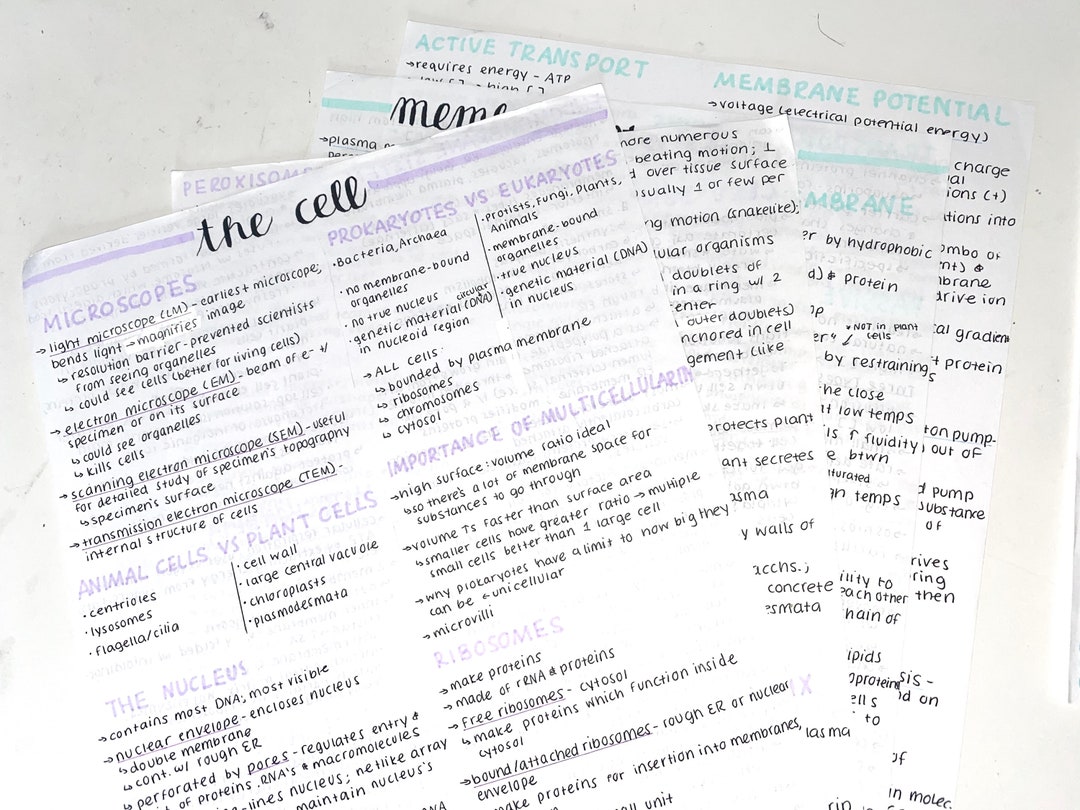 the cell
MICROSCOPES
→light microscope (LM) - earliest microscope;
bends light → magnifies image
↳ resolution barrier - prevented scientists
from seeing organelles
↳ could see cells (better for living cells)
→electron microscope (EM) - beam of e-
specimen or on its surface
↳ could see organelles
↳ kills cells
→scanning electron microscope (SEM) - useful
for detailed study of specimen's topography
↳ specimen's surface
→transmission electron microscope (TEM) -
internal structure of cells
ANIMAL CELLS VS PLANT CELLS
·centrioles
·lysosomes
·flagella/cilia
·cell wall
·large central vacuole
·chloroplasts
·plasmodesmata
THE NUCLEUS
→contains most DNA; most visible
→nuclear envelope - encloses nucleus
↳ double membrane
↳ cont. w/ rough ER
↳ perforated by pores - regulates entry &
of proteins, RNA's & macromolecules
-lines nucleus; netlike array
maintain nucleus's
PROKARYOTES VS EUKARYOTES
·Bacteria, Archaea
·no membrane-bound
organelles
·no true nucleus
circular
·genetic material (DNA)
in nucleoid region
·Protists, Fungi, Plants,
Animals
·membrane-bound
organelles
·true nucleus
·genetic material (DNA)
in nucleus
→ALL cells:
↳ bounded by plasma membrane
↳ ribosomes
↳ chromosomes
↳ cytosol
IMPORTANCE OF MULTICELLULARITY
→high surface:volume ratio ideal
↳so there's a lot of membrane space for
substances to go through
→volume ↑s faster than surface area
↳smaller cells have greater ratio → multiple
small cells better than 1 large cell
→why prokaryotes have a limit to how big they
can be ← unicellular
→microvilli
RIBOSOMES
→make proteins
→made of rRNA & proteins
→Free ribosomes - cytosol
↳ make proteins which function inside
cytosol
→bound/attached ribosomes - rough ER or nuclear
envelope
make proteins for insertion into membranes,
unit
PEROXISOM
more numerous
beating motion; ⊥
d over tissue surface
usually 1 or few per
ng motion (snakelike);
lular organisms
doublets of
in a ring w/ 2
enter
outer doublets)
anchored in cell
gement (like
protects plant
ant secretes
asma
y walls of
concrete
esmata
lasma
mem
→plasma
MBRANE
er by hydrophobic
d) & protein
NOT in plant
cells
by restraining
the close
at low temps
ls ↑ fluidity
e btwn
turated
gn temps
ility to
each other
hain of
ipids
ACTIVE TRANSPORT
→requires energy - ATP
MEMBRANE POTENTIAL
→voltage (electrical potential energy)
charge
ions (+)
ations into
ombo of
nt) &
brane
drive ion
al gradient
t protein
ton pump-
out of
d pump
substance
of
rives
ring
then
sis -
d on
to
of
in molec